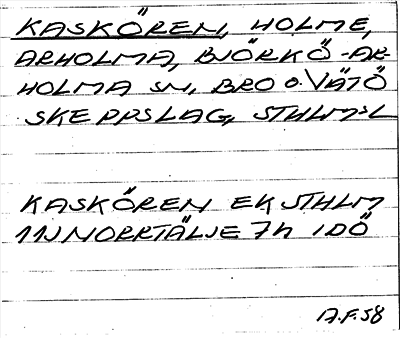 KASKÖREN, HOLME,
ARHOLMA, BJÖRKÖ-AR-
HOLMA SN, BRO O. VÄTÖ
SKEPPSLAG, STHLMSL
KASKÖREN EK STHLM
11J NORRTÄLJE 7h IDÖ
A.F. 58